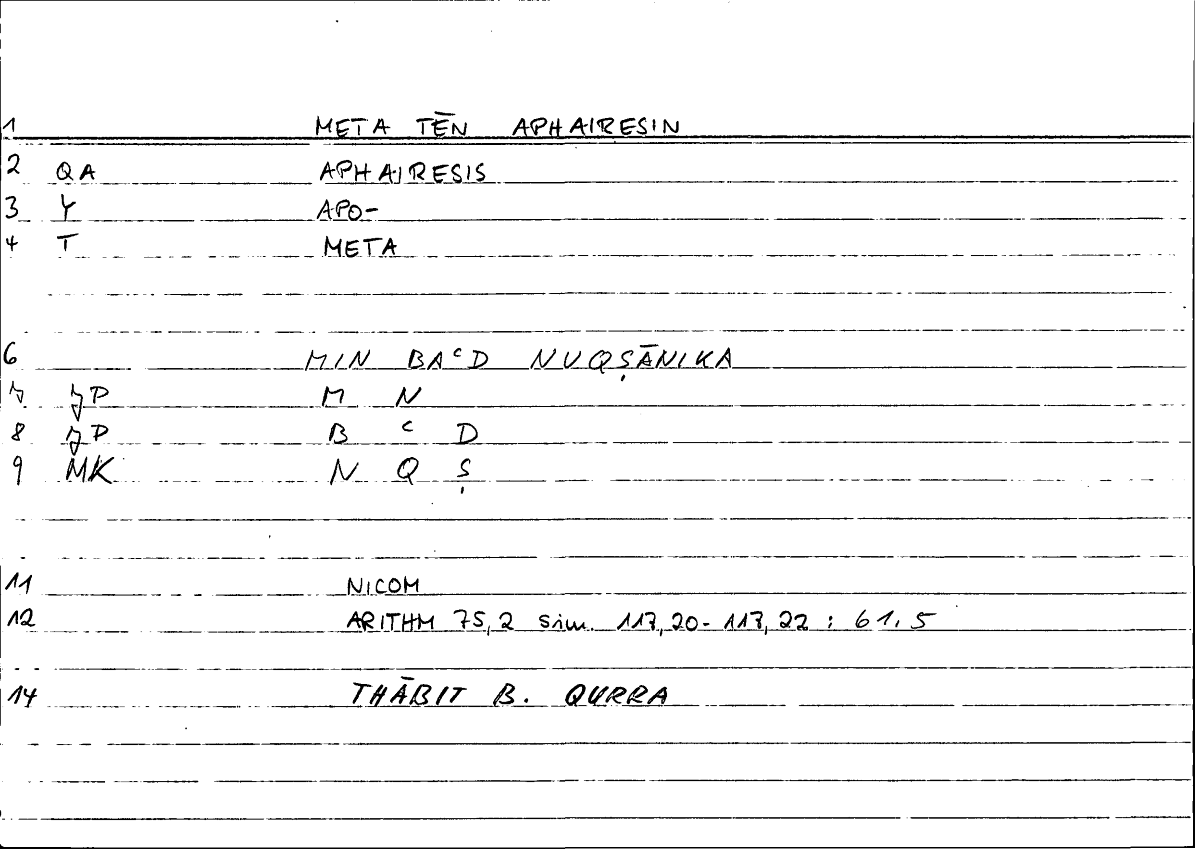 1 META TĒN APHAIRESIN
2 QA APHAIRESIS
3 Y APO-
4 T META
6 MIN BAᶜD NUQṢĀNIKA
7 JP M N
8 JP B ᶜ D
9 MK N Q Ṣ
11 NICOM
12 ARITHM 75,2 sim. 117,20-117,22 : 61.5
14 THĀBIT B. QURRA